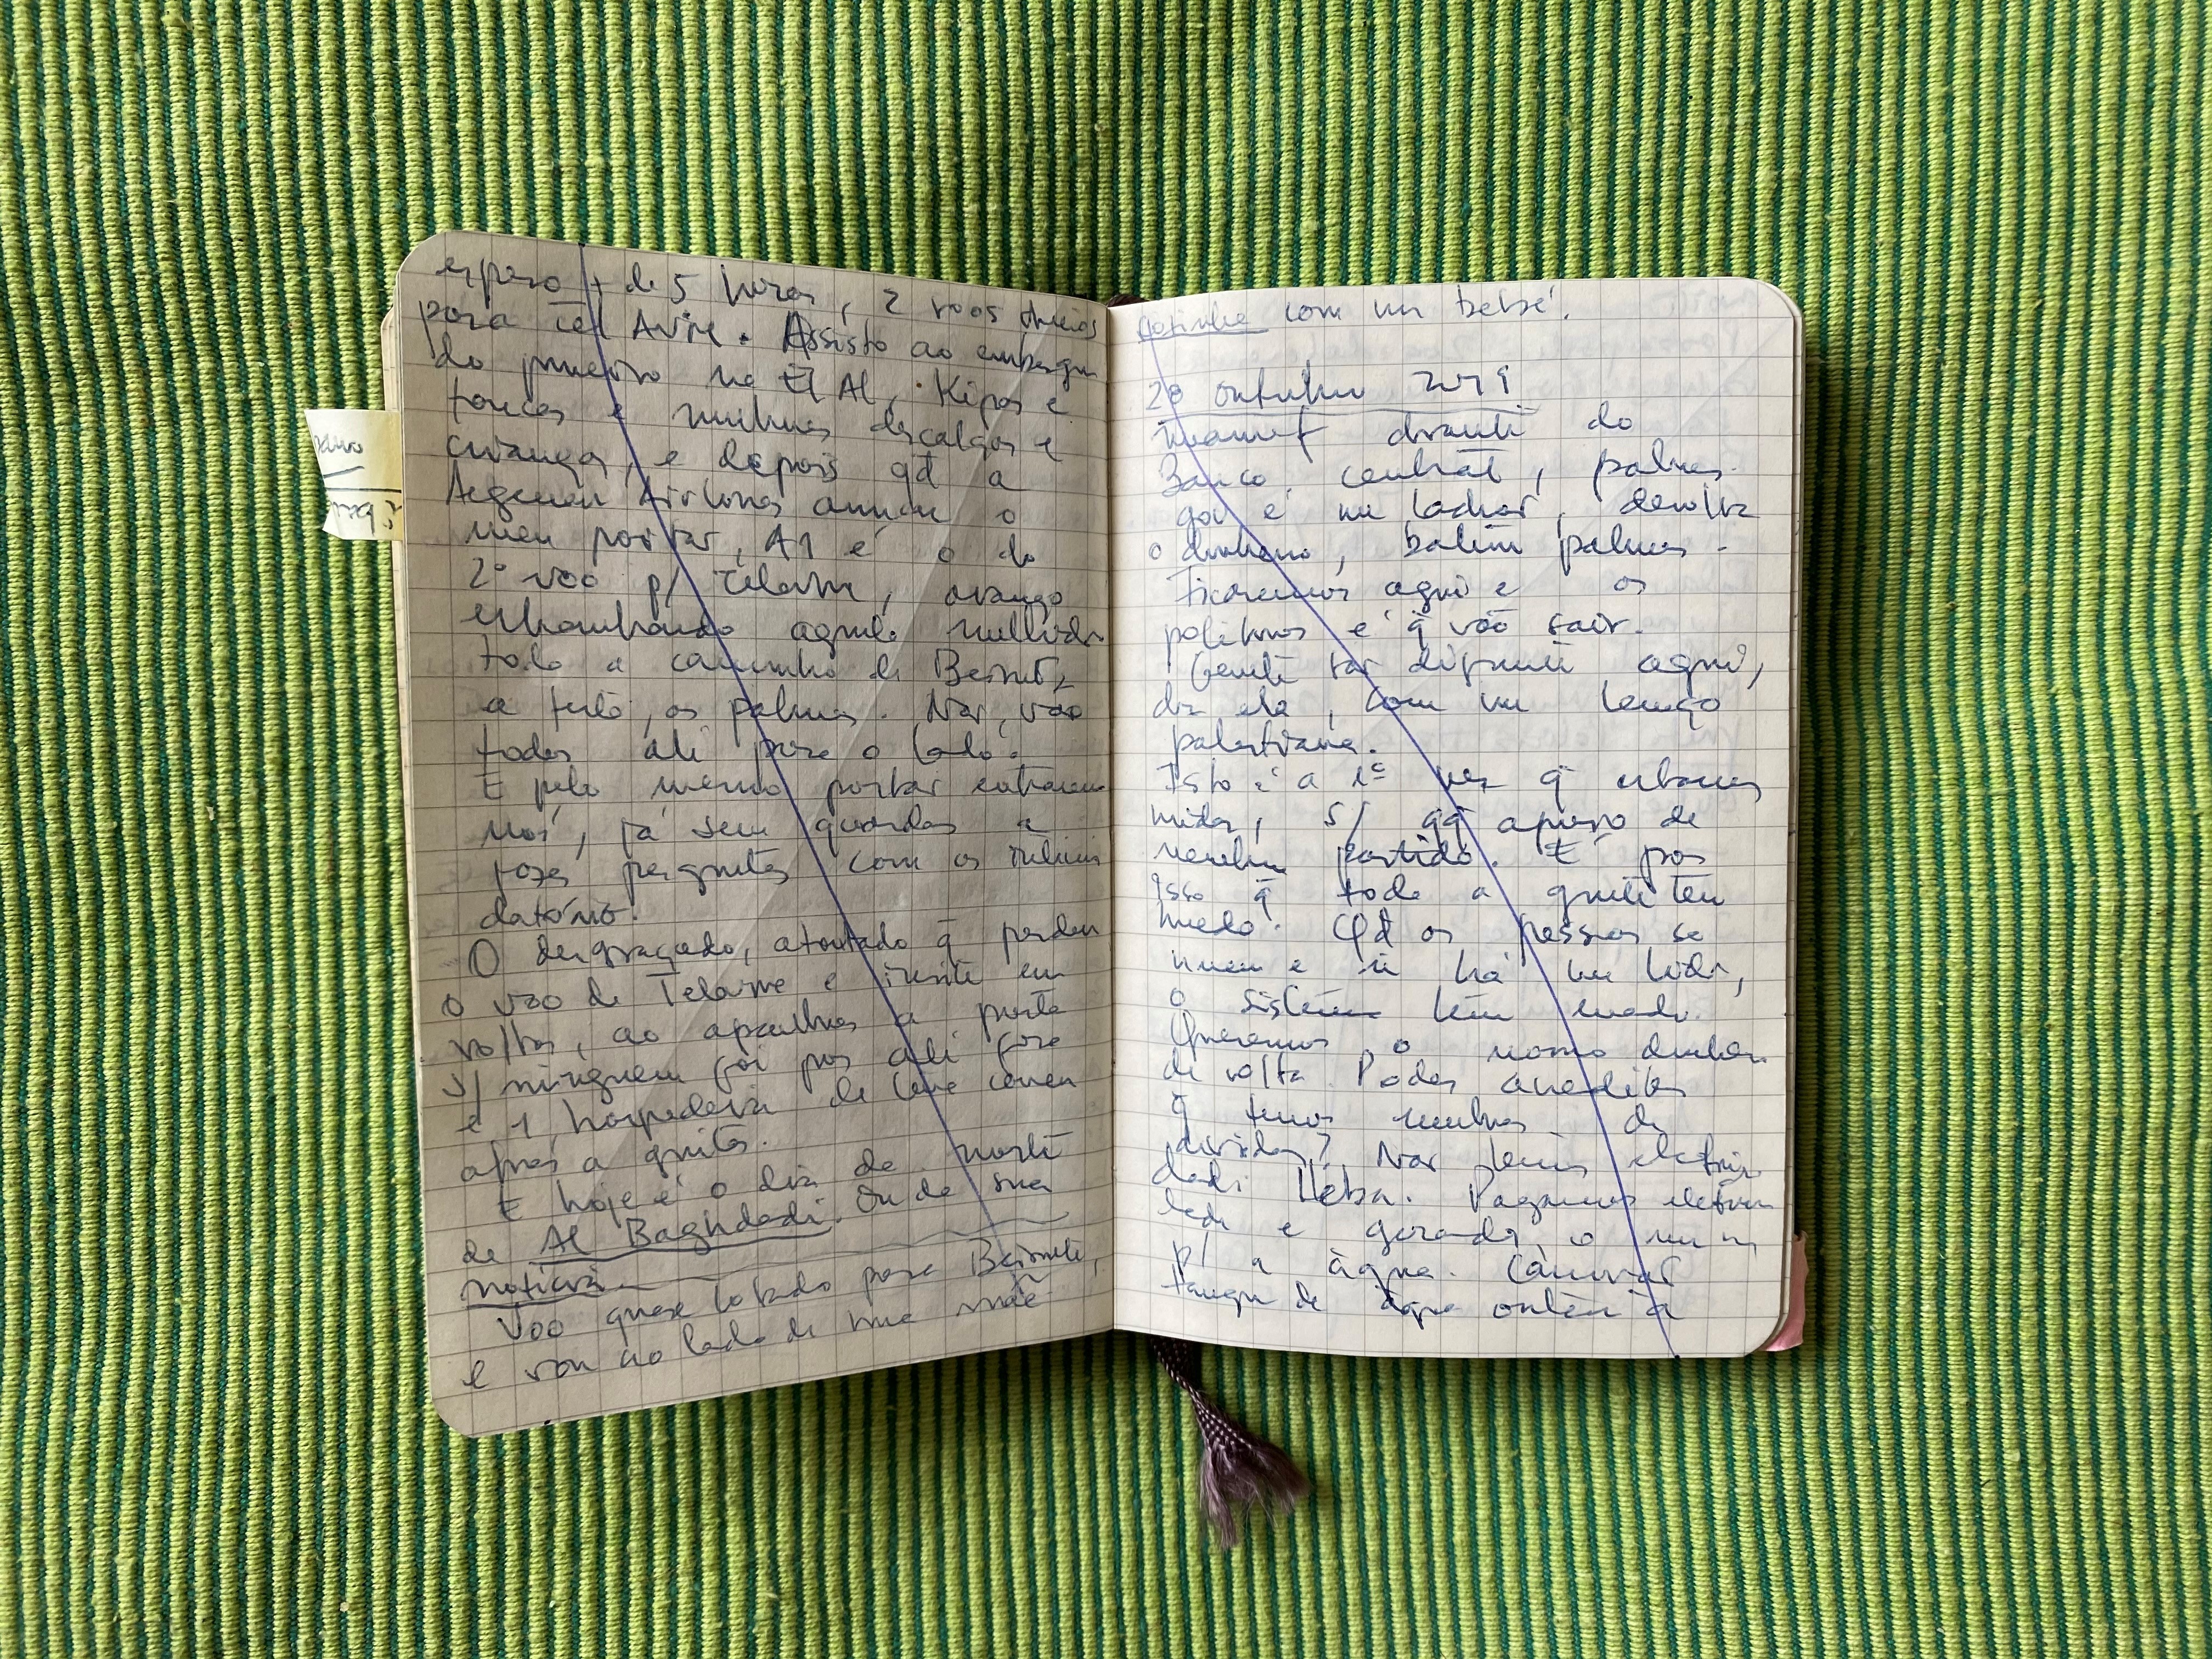 espero + de 5 horas, 2 voos cheios
para Tel Aviv. Assisto ao embarque
do primeiro na El Al. Kipas e
toucas e mulheres descalças e
crianças, e depois qd a
Aegean Airlines anuncia o
meu portar, A1 é o do
2º voo p/ Telavive, avanço
todo a caminho de Beirute,
a festa, as palmas. Não, vão
todos ali para o lado.
E pelo mesmo portar entraremos
nós, já sem guardas a
fazer perguntas com os
O desgraçado, atontado q̄ perdeu
o voo de Telavive e insiste em
voltar, ao aparelho a porta
s/ ninguém foi por ali fora
e 1 hospedeira de leve correu
após a gritar.
E hoje é o dia da morte
de Al Baghdadi. Ou da sua
notícia.
Voo quase lotado para Beirute,
e vou ao lado de uma mãe
com um bebé.
28 outubro 2019
do
Banco central, palmas.
é um ladrão, devolve
o dinheiro, batem palmas.
Ficaremos aqui e os
políticos é q̄ vão sair.
Gente tão diferente aqui,
diz ela, com um lenço
palestiniano.
Isto é a 1ª vez q̄ estamos
unidos, s/ qq apoio de
nenhum partido. E por
isso q̄ toda a gente tem
medo. Qd as pessoas se
unem e ñ há um líder,
o sistema tem medo.
Queremos o nosso dinheiro
de volta. Podes acreditar
q̄ temos milhões de
dívidas? Não temos electrici
dade Heba. Pagamos electrici
dade e gerador, o
p/ a água.
tanque de água ontem à